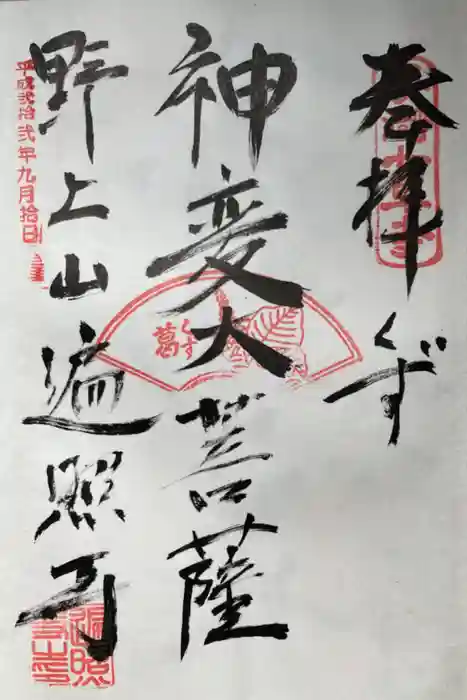 奉拝
くず
神変大菩薩
くず
葛
野上山遍照寺
平成弐拾弐年九月拾日